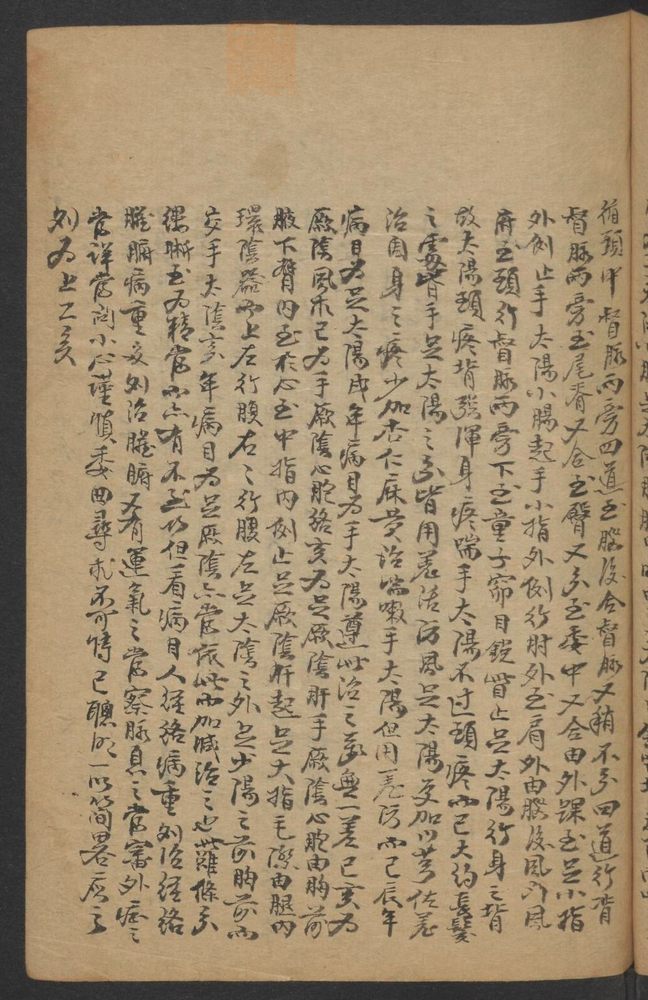 循頭中督脉両旁四道至腦後合督脉又稍不分四道行背
督脉両旁至尾脊又合至臀又分至委中又合由外踝至足小指
外側止手太陽小腸起手小指外側行肘外至肩外由腦後風門風
府至頭行督脉両旁下至童子節目銳眥止足太陽行身之背
故太陽頭疼背强渾身疼喘手太陽不过頭疼而已大約長髮
之處皆手足太陽之分皆用羌活防風足太陽更加川芎佐羌
治周身之疼少加杏仁麻黄治喘嗽手太陽但用羌防而已辰年
病目为足太陽戌年病目为手太陽遵此治之萬無一差已亥为
厥陰風木已为手厥陰心胞絡亥为足厥陰肝手厥陰心胞由胸前
腋下臂内至於心至中指内側止足厥陰肝起足大指毛際由腿内
環陰器而上左行腹右之行腰左足太陰之外足少陽之前胸前而
交手太陰亥年病目为足厥陰亦當依此而加減治之也雖條分
縷晰至为精當而亦有不的但看病目人經絡病重則治經絡
臟腑病重亥則治臟腑又有運氣之當察脉息之當審外症之
當詳當問小心謹慎委曲尋求不可恃己聰明一以簡畧应之
列为上工矣